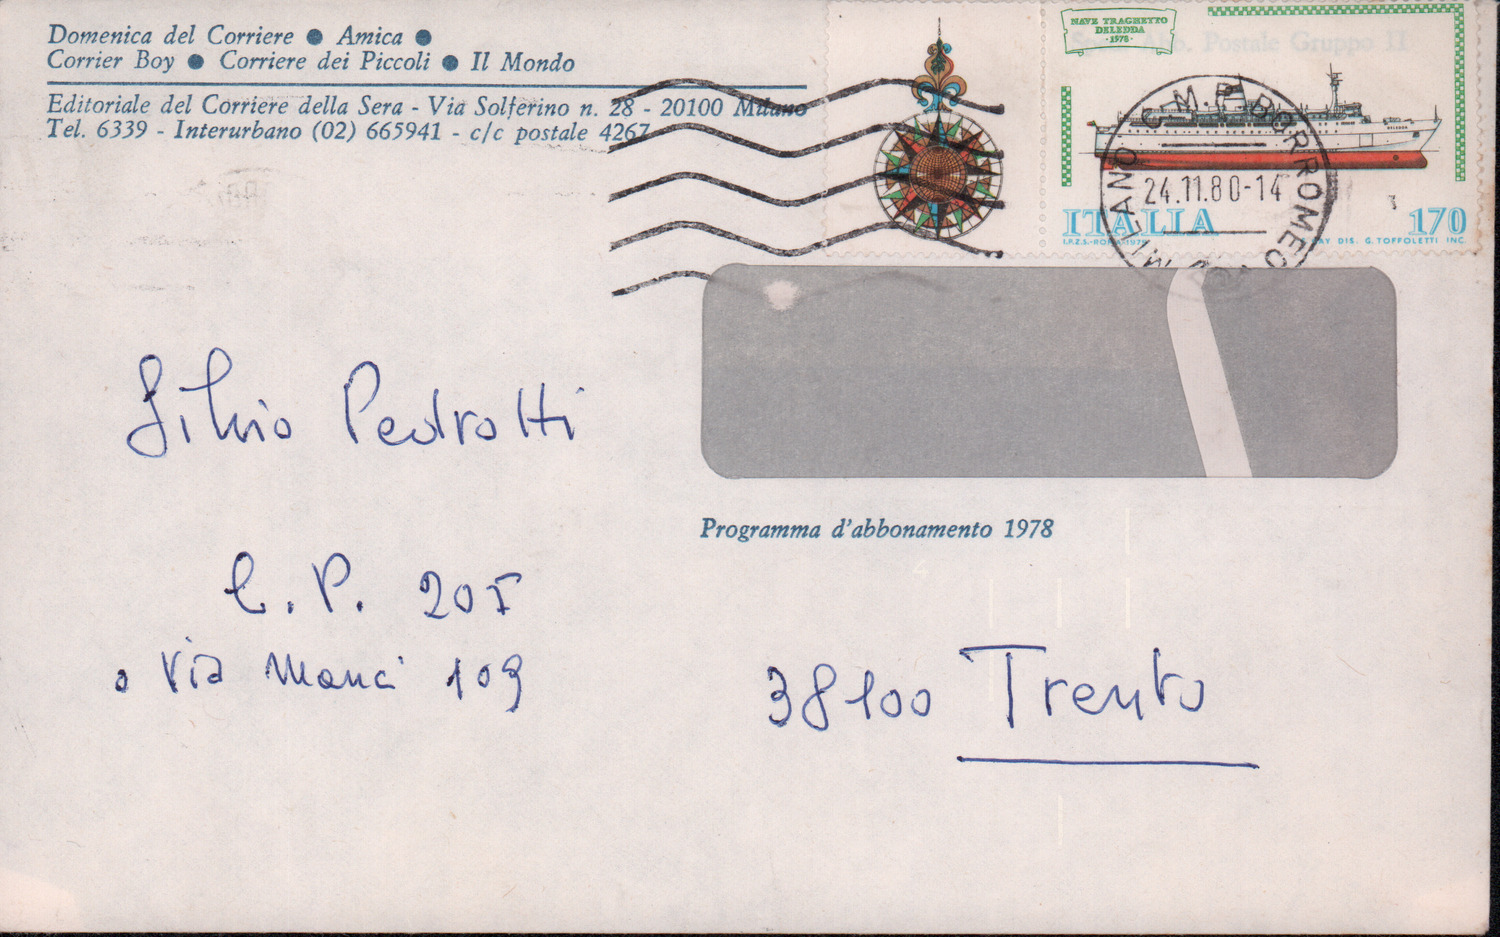 Domenica del Corriere ● Amica ●
Corrier Boy ● Corriere dei Piccoli ● Il Mondo
Editoriale del Corriere della Sera - Via Solferino n. 28 - 20100 Milano
Tel. 6339 - Interurbano (02) 665941 - c/c postale 4267
NAVE TRAGHETTO
DELEDDA
·1978·
Abb. Postale Gruppo II
MILANO C.M.P. BORROMEO
24.11.80-14
ITALIA
170
I.P.Z.S.-ROMA-1979
DIS. G. TOFFOLETTI INC.
Silvio Pedrotti
Programma d'abbonamento 1978
C. P. 205
Via Manci 109
38100 Trento